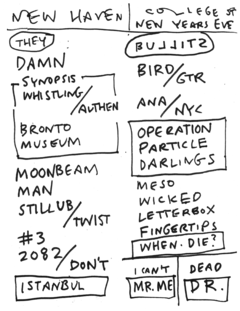 NEW HAVEN
THEY
DAMN
SYNOPSIS
WHISTLING/
AUTHEN
BRONTO
MUSEUM
MOONBEAM
MAN
STILLUB/
TWIST
#3
2082/
DON'T
ISTANBUL
COLLEGE ST
NEW YEARS EVE
BULLITS
BIRD/
GTR
ANA/
NYC
OPERATION
PARTICLE
DARLINGS
MESO
WICKED
LETTERBOX
FINGERTIPS
WHEN DIE?
I CAN'T
MR. ME
DEAD
DR.